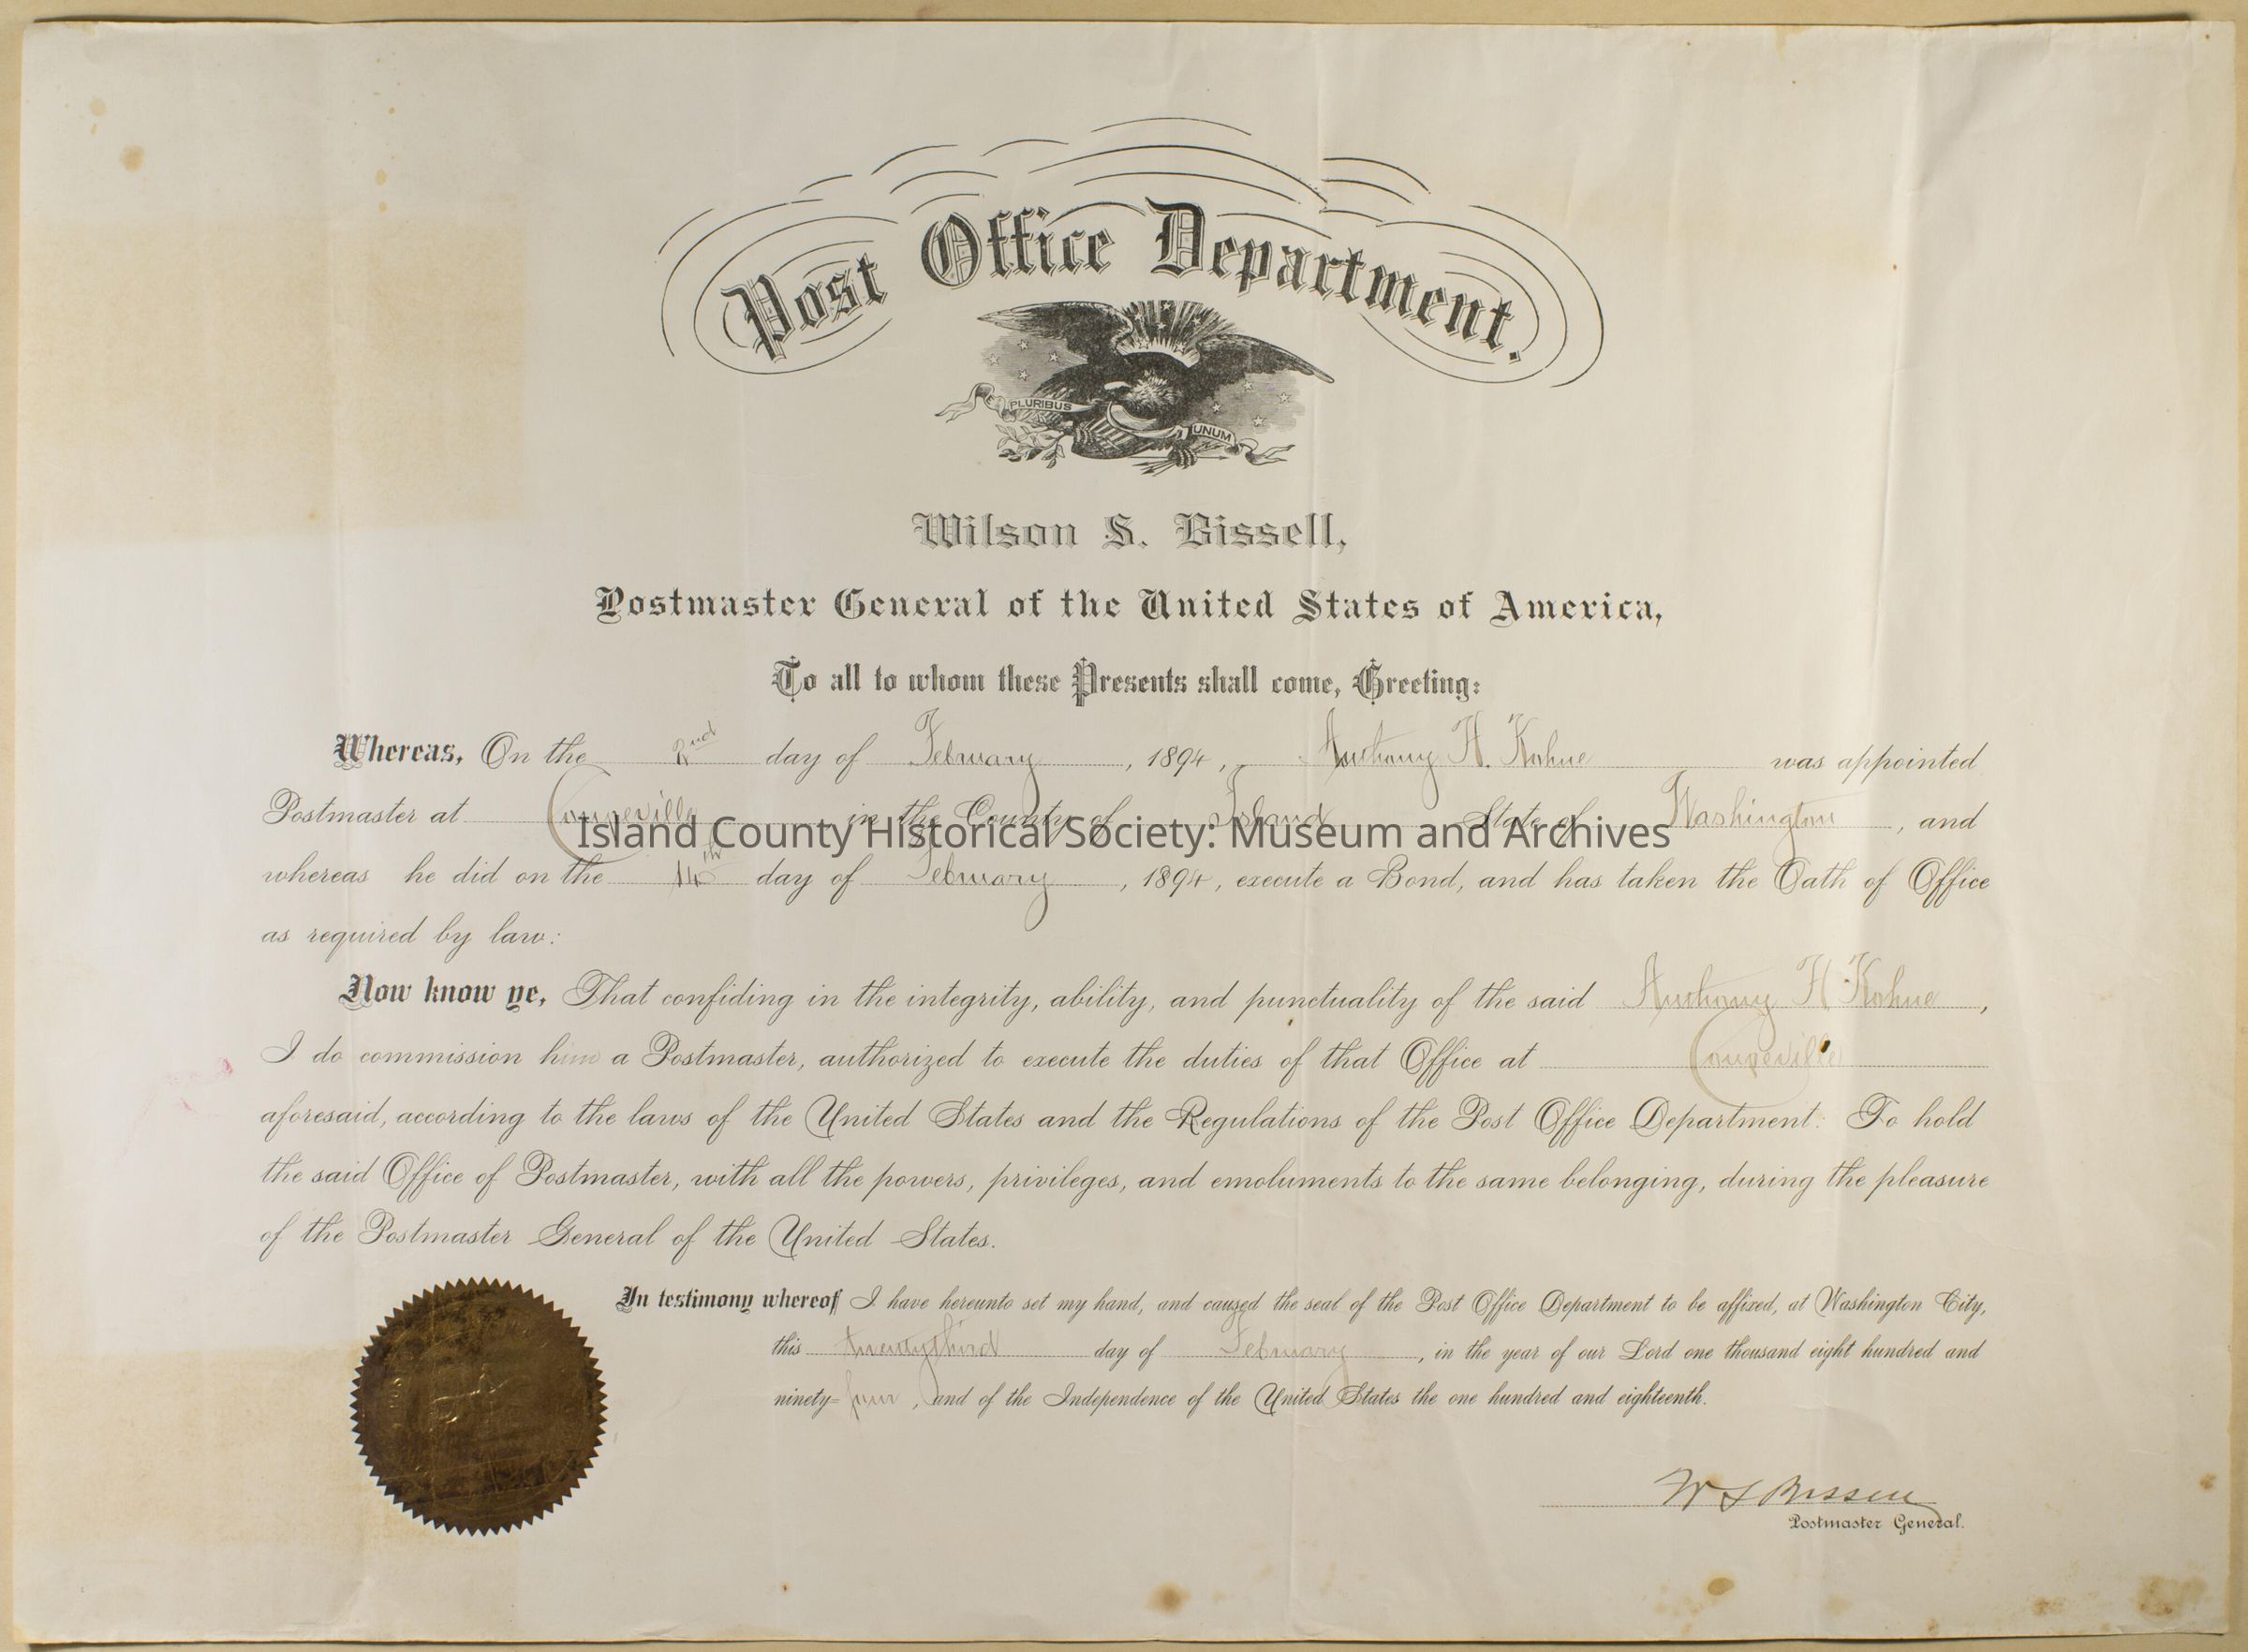 Post Office Department.
E PLURIBUS UNUM
Wilson S. Bissell,
Postmaster General of the United States of America,
To all to whom these Presents shall come, Greeting:
Whereas, On the 2nd day of February, 1894, Anthony H. Kohne was appointed
Postmaster at Coupeville in the County of Island State of Washington, and
Island County Historical Society: Museum and Archives
whereas he did on the 14th day of February, 1894, execute a Bond, and has taken the Oath of Office
as required by law:
Now know ye, That confiding in the integrity, ability, and punctuality of the said Anthony H. Kohne,
I do commission him a Postmaster, authorized to execute the duties of that Office at Coupeville
aforesaid, according to the laws of the United States and the Regulations of the Post Office Department: To hold
the said Office of Postmaster, with all the powers, privileges, and emoluments to the same belonging, during the pleasure
of the Postmaster General of the United States.
In testimony whereof I have hereunto set my hand, and caused the seal of the Post Office Department to be affixed, at Washington City,
this twentythird day of February, in the year of our Lord one thousand eight hundred and
ninety=four, and of the Independence of the United States the one hundred and eighteenth.
W S Bissell
Postmaster General.